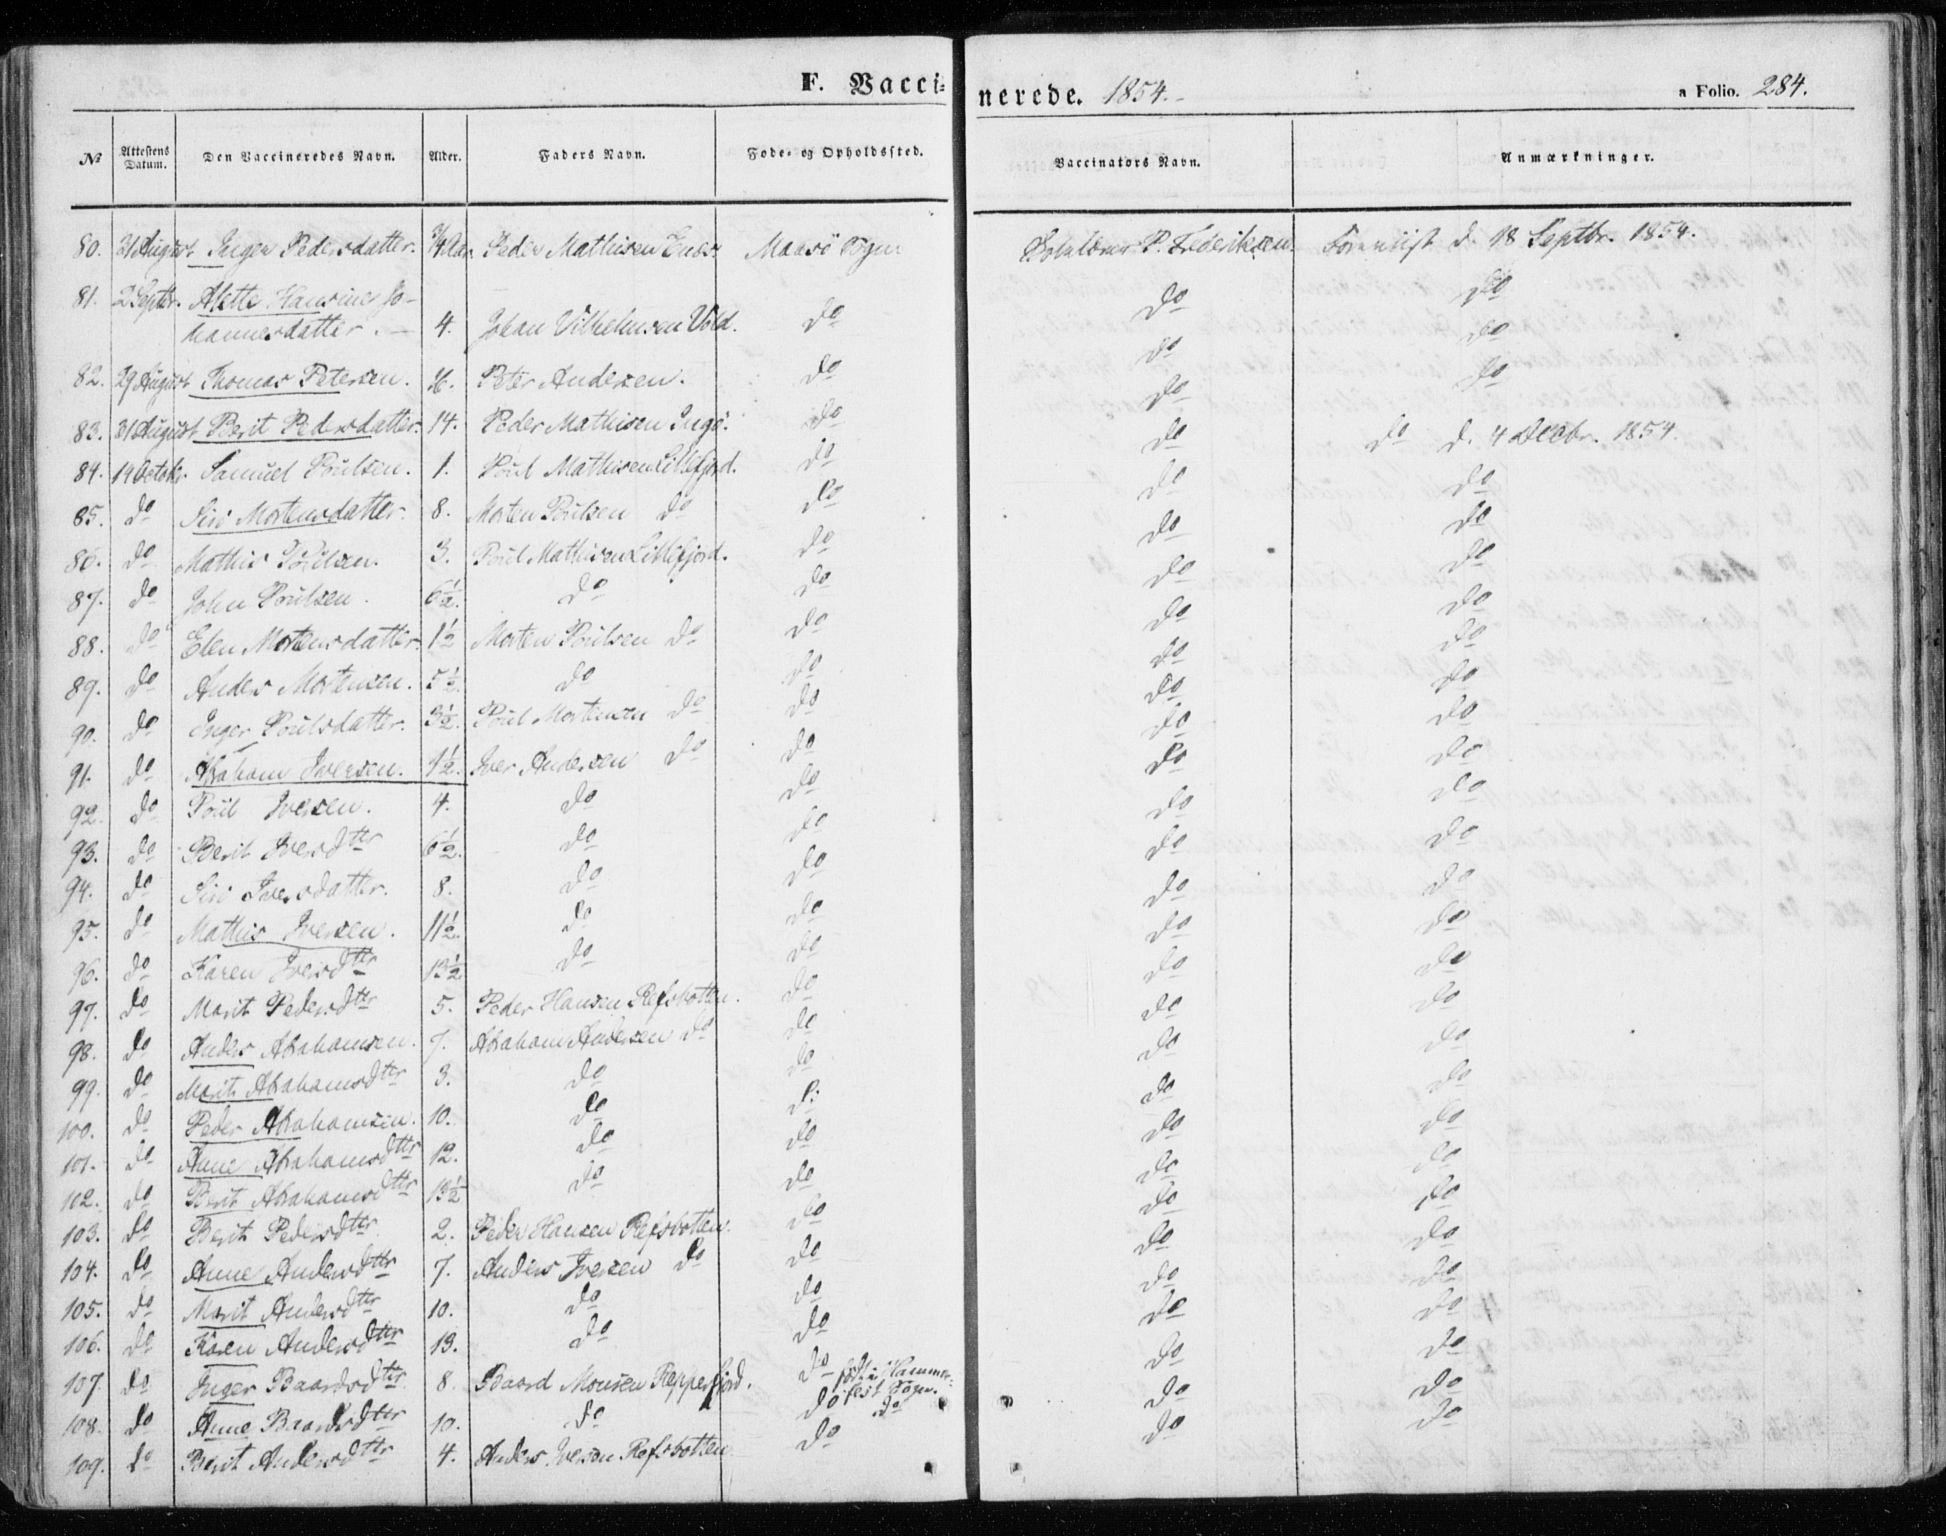 F. Vaccinerede. 1854. a Folio. 284.
No Attestens Datum. Den Vaccineredes Navn. Alder. Faders Navn. Føde- og Opholdssted. Vaccinators Navn. Anmærkninger.
80. 31 August Inger Pedersdatter. Peder Mathisen Maasö Sogn P. Frederiksen. d. 18 Septbr. 1854.
81. 2 Septbr. Alette Hansine Jo-
hannesdatter. 4. Johan Vilhelmsen Vold. do do do
82. 29 August Thomas Petersen. Peter Andersen. do do do
83. 31 August Berit Pedersdatter. 14. Peder Mathisen Ingö. do do do
84. 14 Octobr. Samuel Poulsen. 1. Poul Mathisen Lillefjord. do do do d. 4 Decbr. 1854.
85. do Siri Mortensdatter. 8. Morten Poulsen do do do do
86. do Mathis Poulsen. 3. Poul Mathisen Lillefjord. do do do
87. do John Poulsen. 6½. do do do do
88. do Elen Mortensdatter. 1½ Morten Poulsen do do do do
89. do Anders Mortensen. 5½. do do do do
90. do Inger Poulsdatter. 3½. Poul Mortensen do do do do
91. do Abraham Iversen. 1½. Iver Andersen do do do do
92. do Poul Iversen. 4. do do do do
93. do Berit Iversdtr 6½. do do do do
94. do Siri Iversdatter. 8. do do do do
95. do Mathis Iversen. 11½. do do do do
96. do Karen Iversdtr 13½ do do do do
97. do Marit Pedersdtr 5. Peder Hansen Refsbotten. do do do
98. do Anders Abrahamsen. 7. Abraham Andersen do do do do
99. do Marit Abrahamsdtr 3. do do do do
100. do Peder Abrahamsen. 10. do do do do
101. do Anne Abrahamsdtr 12. do do do do
102. do Berit Abrahamsdtr 13½ do do do do
103. do Berit Pedersdtr 2. Peder Hansen Refsbotten. do do do
104. do Anne Andersdtr 7. Anders Iversen do do do do
105. do Marit Andersdtr 10. do do do do
106. do Karen Andersdtr 13. do do do do
107. do Inger Baardsdtr 8. Baard Monsen Repperfjord. do födt i Hammer-
fest Sogn. do do
108. do Anne Baardsdtr 10. do do do do do
109. do Berit Andersdtr 4. Anders Iversen Refsbotten do do do